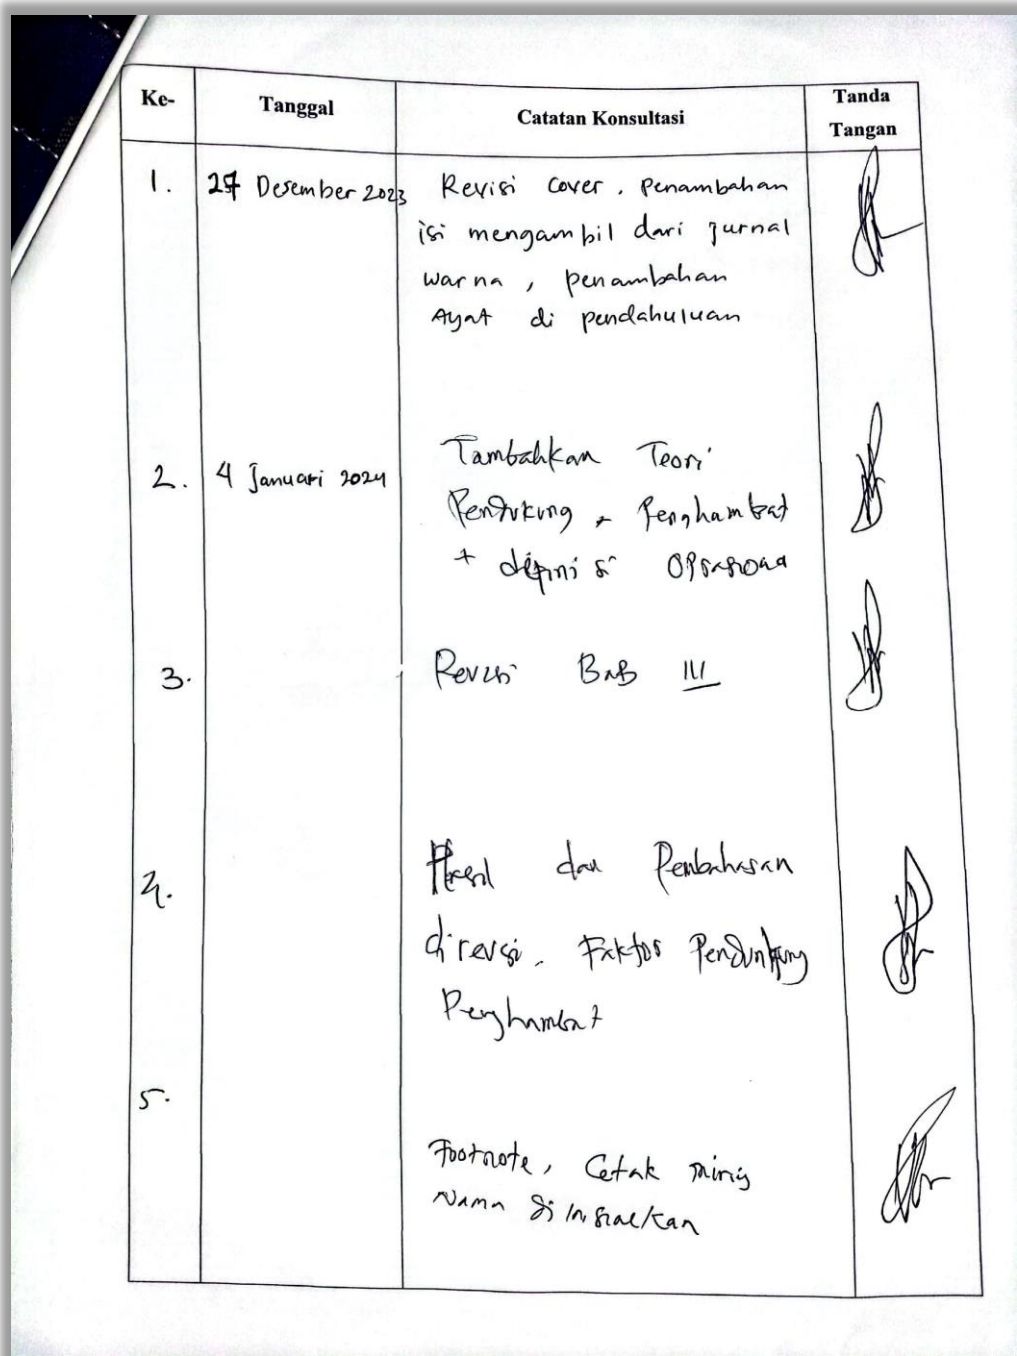 Ke-
Tanggal
Catatan Konsultasi
Tanda
Tangan
1.
27 Desember 2023
Revisi cover, penambahan
isi mengambil dari jurnal
warna, penambahan
Ayat di pendahuluan
2.
4 Januari 2024
Tambahkan Teori
Pendukung + Penghambat
+ definisi
3.
Revisi BAB III
4.
Hasil dan Pembahasan
direvsi. Faktor Pendunkung
Penghambat
5.
Footnote, Cetak miring
Nama di